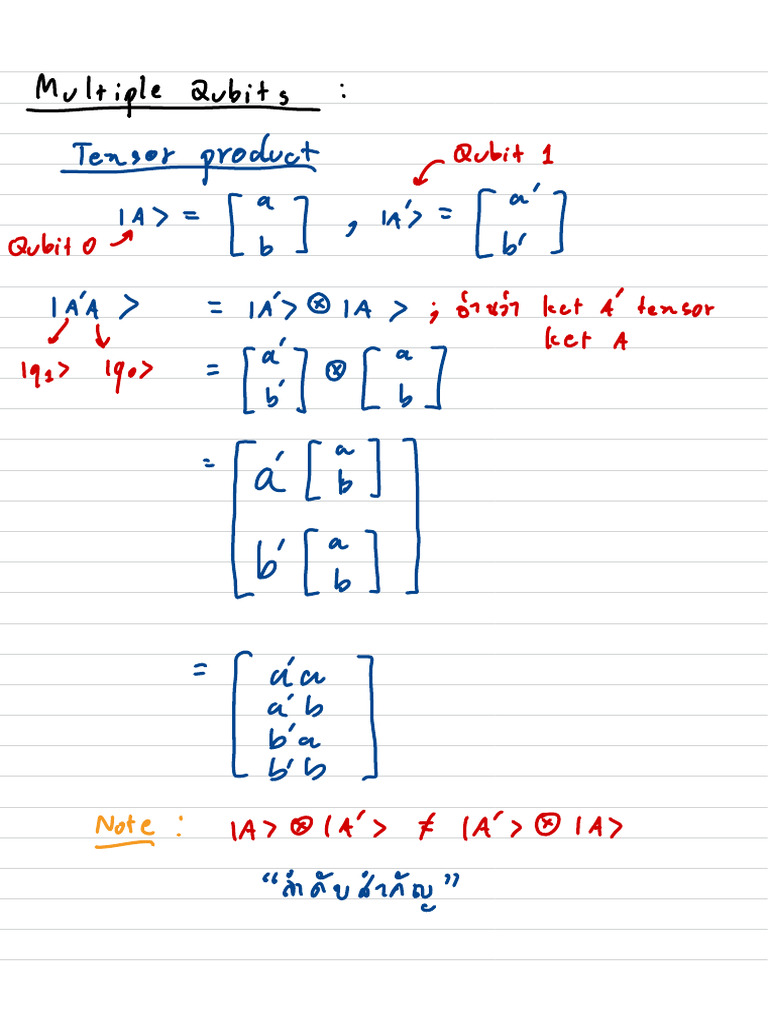 Multiple Qubits :
Tensor product
Qubit 1
|A> = [a b] , |A'> = [a' b']
Qubit 0
|A'A> = |A'> ⊗ |A> ; อ่านว่า ket A' tensor
ket A
|q₁> |q₀> = [a' b'] ⊗ [a b]
= [a' [a b] b' [a b]]
= [a'a
a'b
b'a
b'b]
Note : |A> ⊗ |A'> ≠ |A'> ⊗ |A>
“ลำดับสำคัญ”